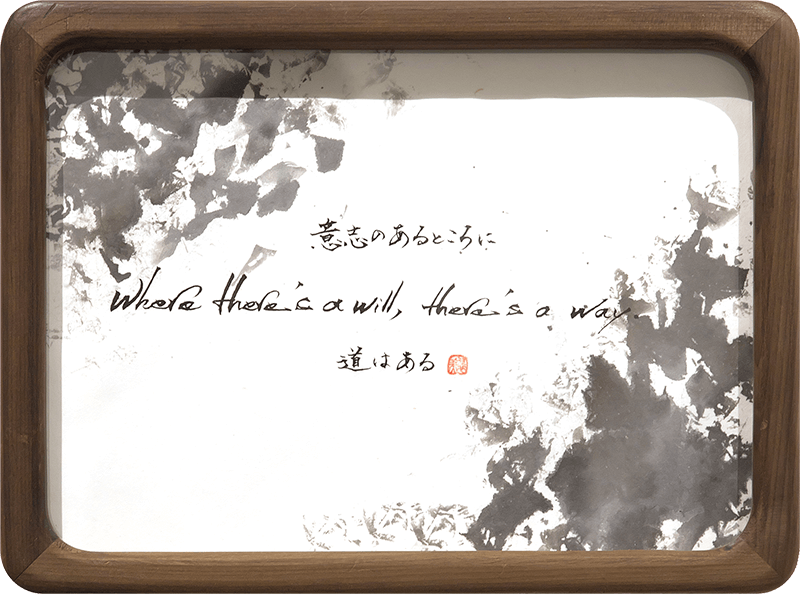 意志のあるところに
Where there's a will, there's a way.
道はある